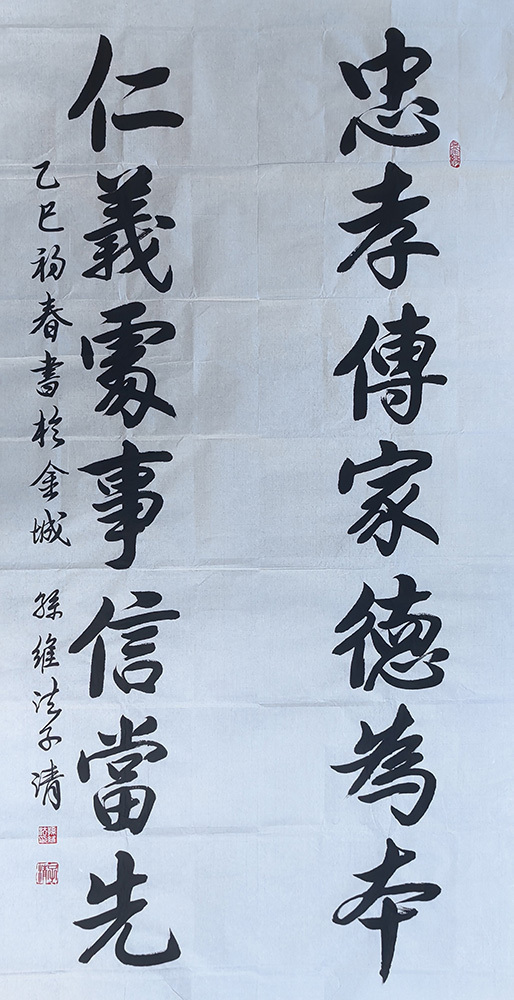 忠孝傳家德為本
仁義處事信當先
乙巳初春書於金城 孫維法子清